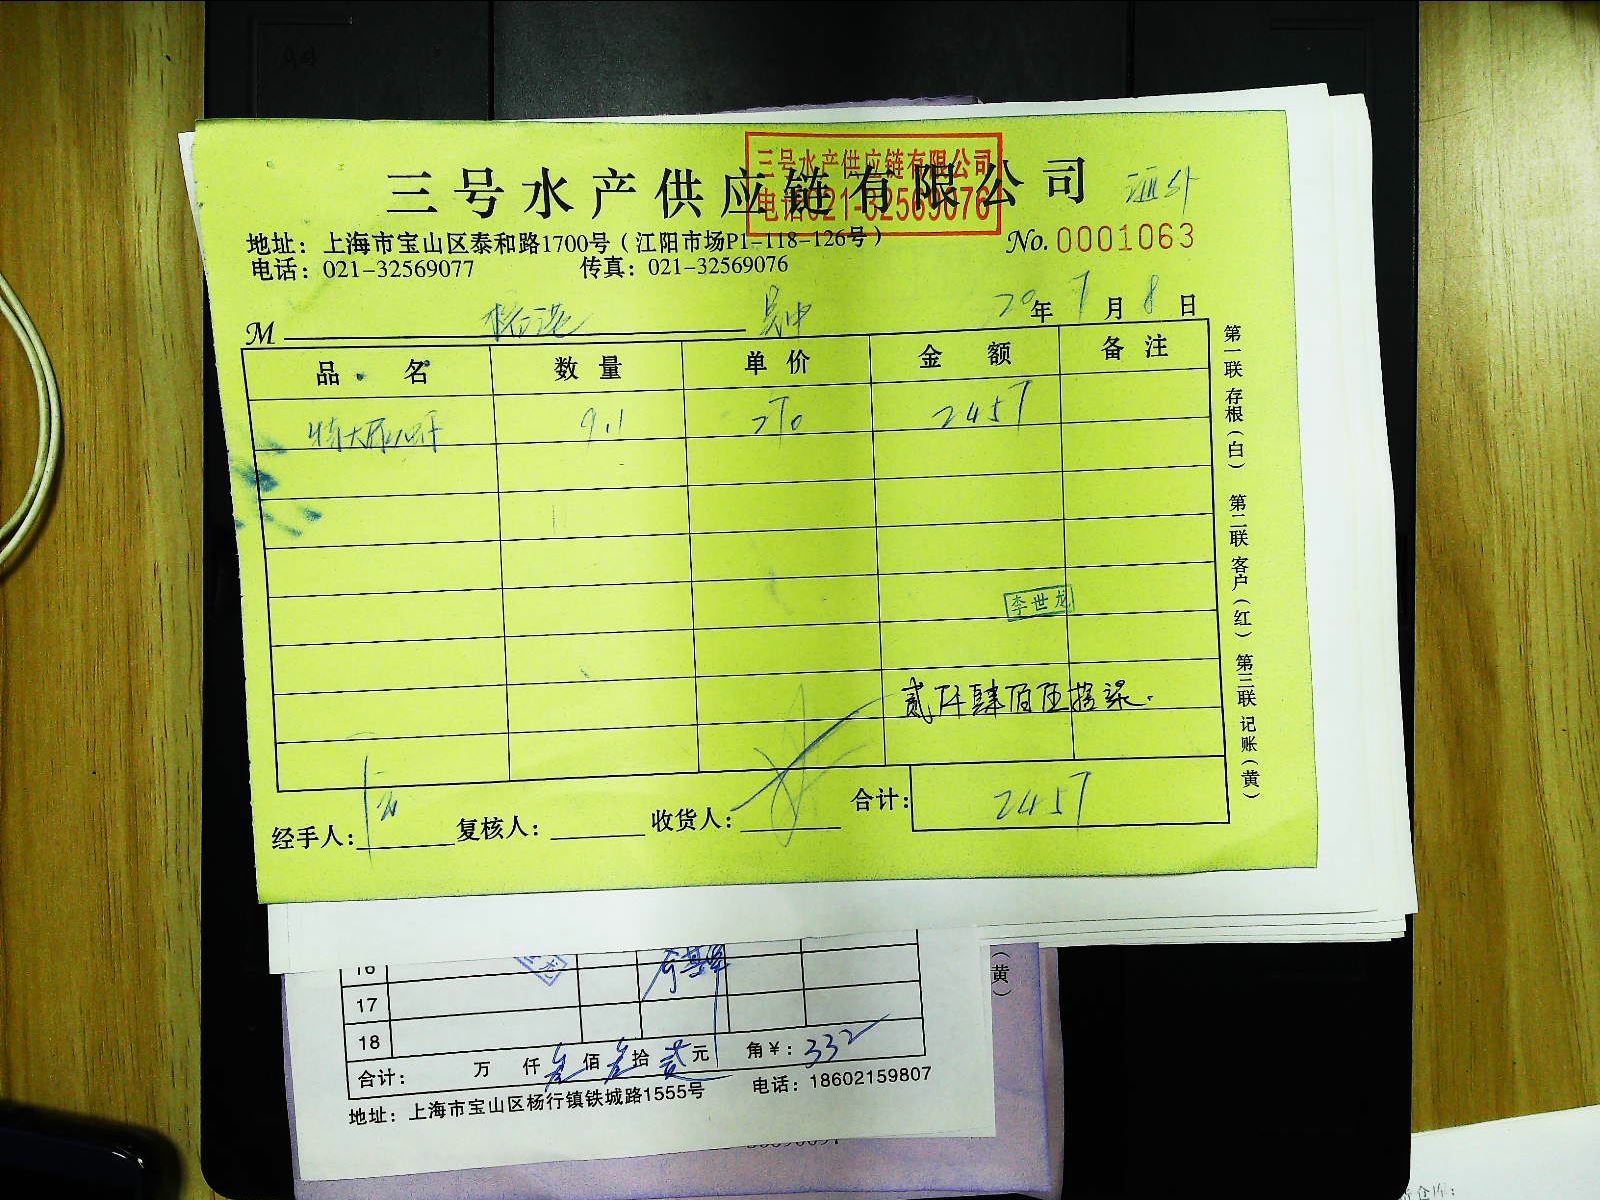 三号水产供应链有限公司
三号水产供应链有限公司
电话021-32569076
地址：上海市宝山区泰和路1700号（江阳市场P1-118-126号）
No.0001063
电话：021-32569077 传真：021-32569076
M 吴中 20年7月8日
品名 数量 单价 金额 备注
9.1 270 2457
李世龙
贰仟肆佰伍拾柒
经手人： 复核人： 收货人： 合计： 2457
第一联 存根（白） 第二联 客户（红） 第三联 记账（黄）
（黄）
16
17
18
合计： 万 仟叁佰叁拾贰元 角￥：332
地址：上海市宝山区杨行镇铁城路1555号 电话：18602159807